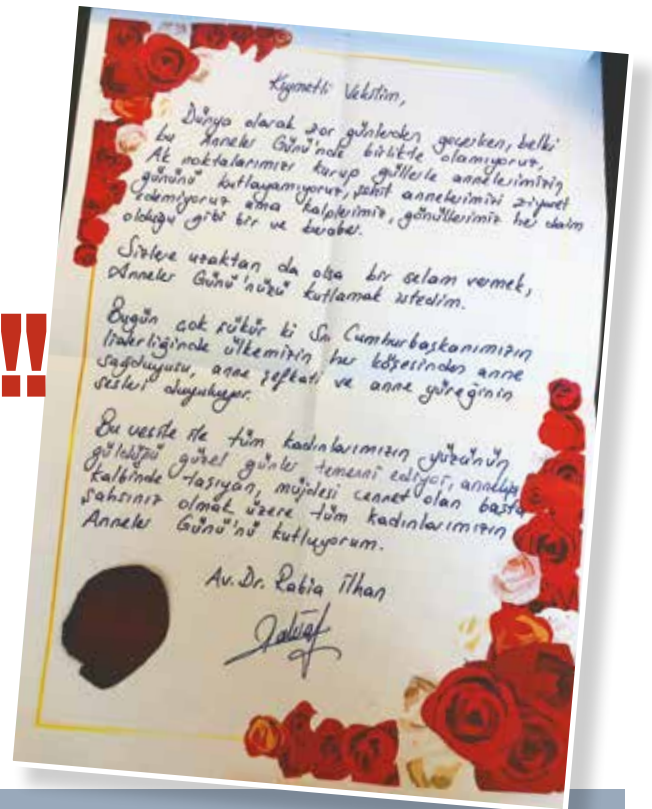 Kıymetli Vekilim,
Dünya olarak zor günlerden geçerken, belki
bu Anneler Günü'nde birlikte olamıyoruz,
Ak noktalarımızı kurup güllerle annelerimizin
gününü kutlayamıyoruz, şehit annelerimizi ziyaret
edemiyoruz ama kalplerimiz, gönüllerimiz her daim
olduğu gibi bir ve beraber.
Sizlere uzaktan da olsa bir selam vermek,
Anneler Günü'nüzü kutlamak istedim.
Bugün çok şükür ki Sn. Cumhurbaşkanımızın
liderliğinde ülkemizin her köşesinden anne
sağduyusu, anne şefkati ve anne yüreğinin
sesleri duyuluyor.
Bu vesile ile tüm kadınlarımızın yüzünün
güldüğü güzel günler temenni ediyor, anneliği
kalbinde taşıyan, müjdesi cennet olan başta
şahsınız olmak üzere tüm kadınlarımızın
Anneler Günü'nü kutluyorum.
Av. Dr. Rabia İlhan
!!